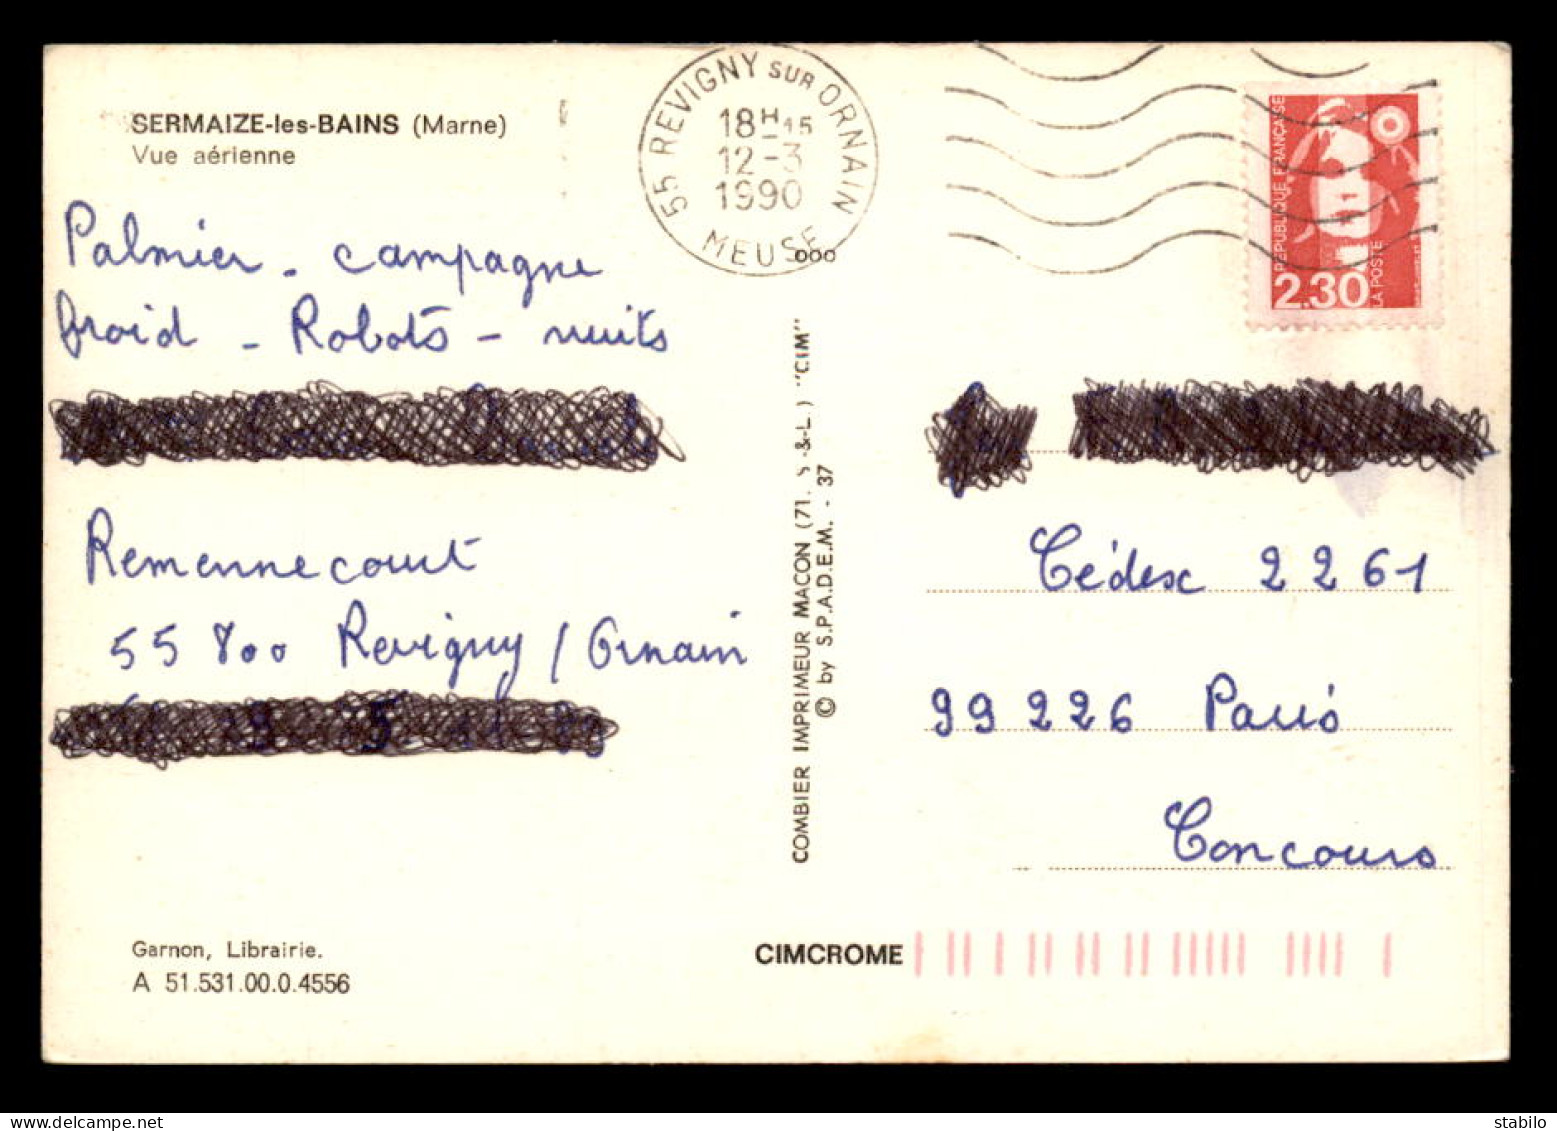 SERMAIZE-les-BAINS (Marne)
Vue aérienne
55 REVIGNY SUR ORNAIN
18H15
12-3
1990
MEUSE
ooo
REPUBLIQUE FRANÇAISE
2,30
LA POSTE
Palmier - campagne
froid - Robots - nuits
Remennecourt
55 800 Revigny / Ornain
COMBIER IMPRIMEUR MACON (71. S.-&-L.) "CIM"
© by S.P.A.D.E.M. - 37
Cédex 2261
99226 Paris
Concours
Garnon, Librairie.
A 51.531.00.0.4556
CIMCROME
stabilo